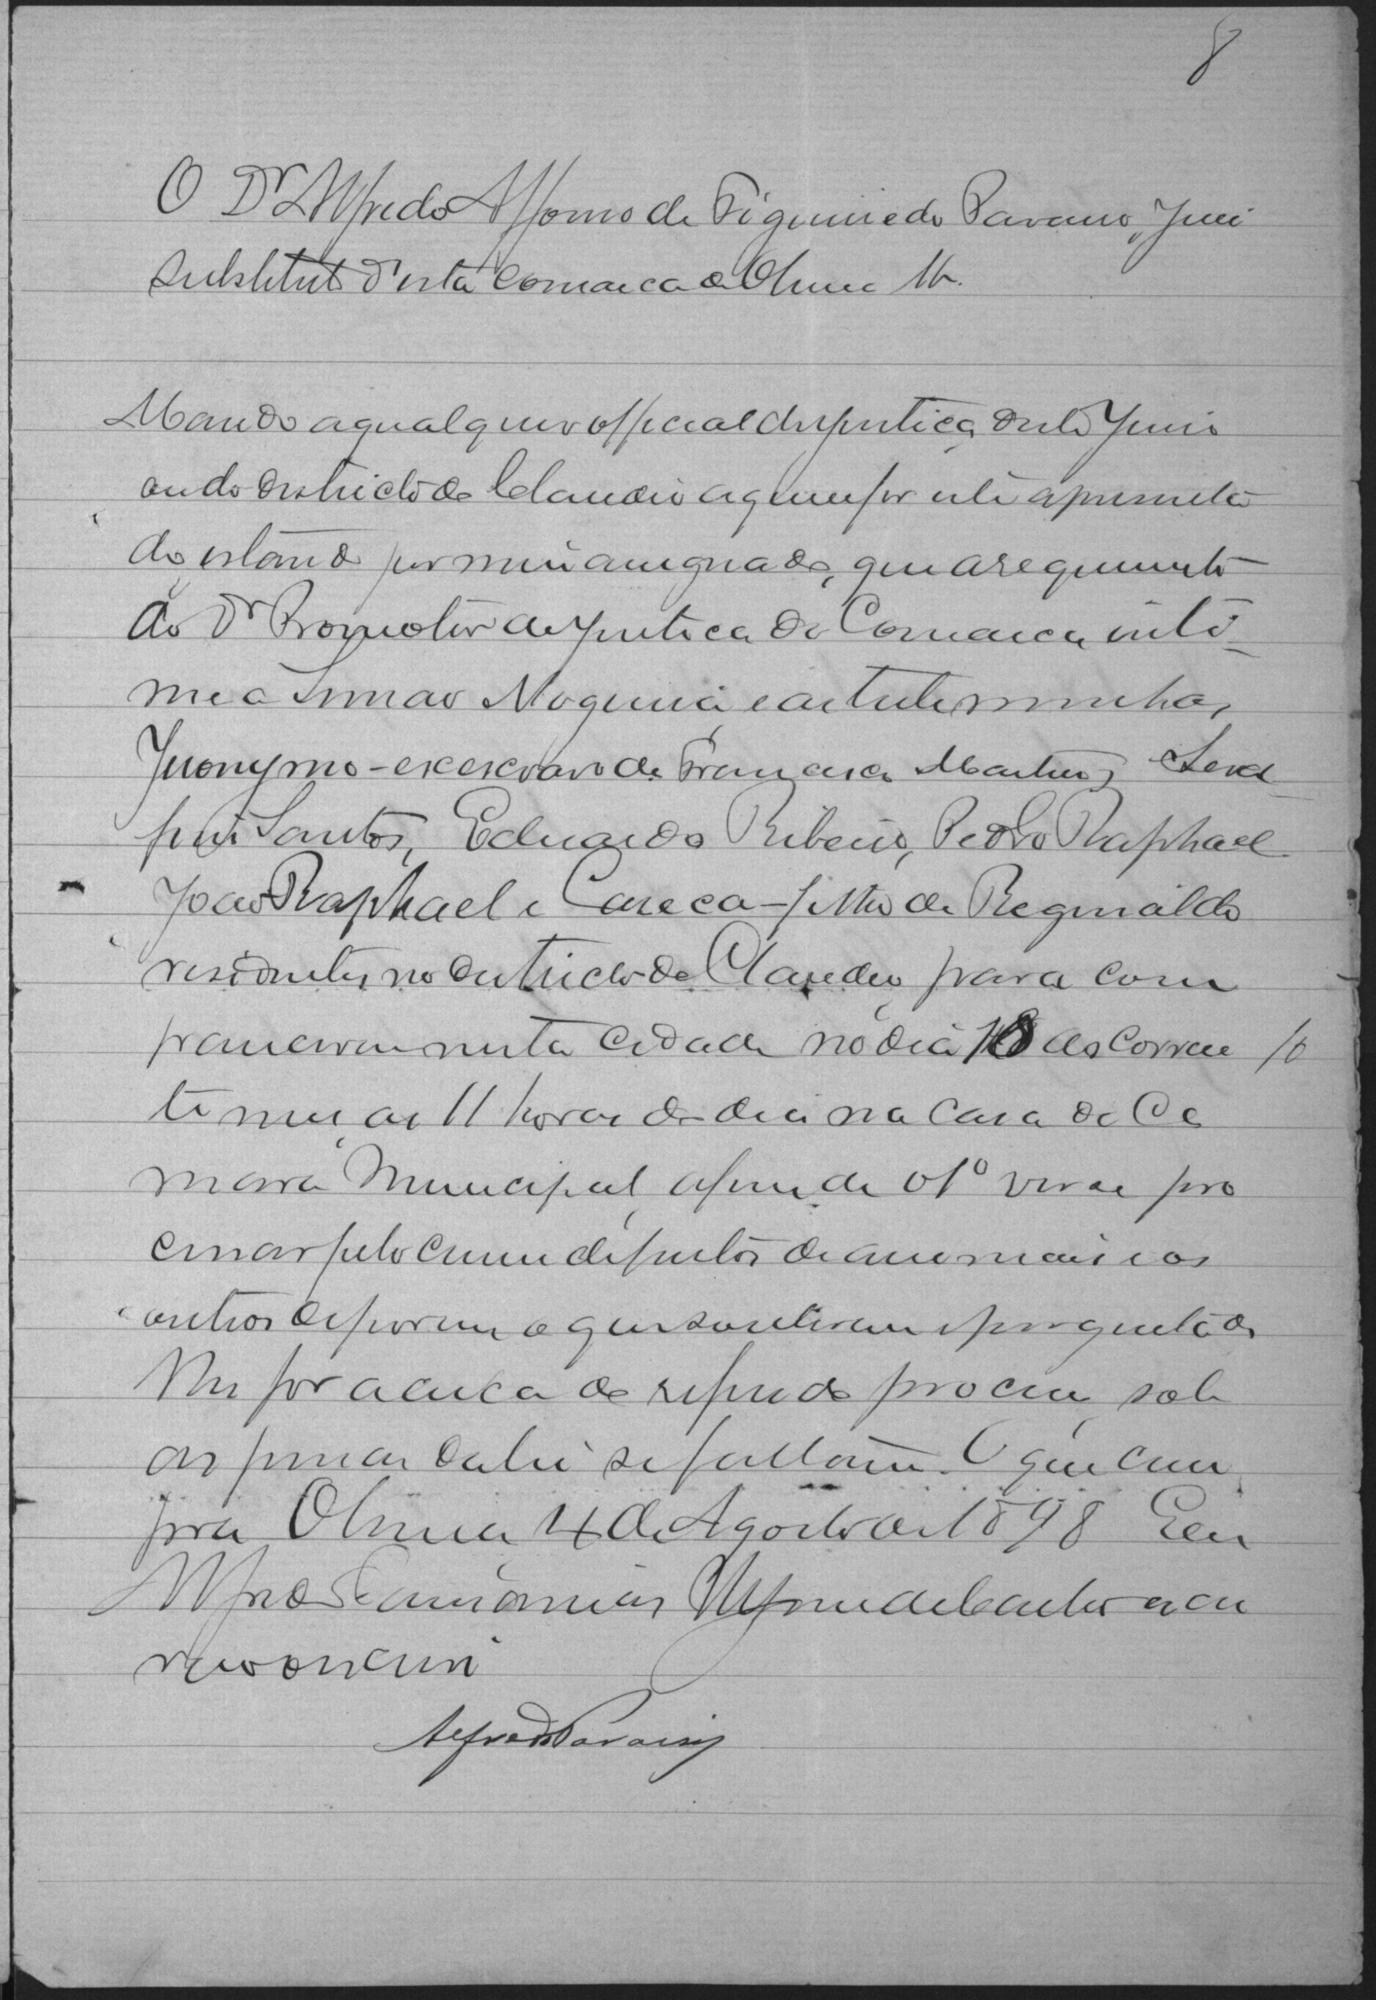 8
O Dr Alfredo Affonso de Figueiredo Paraiso, Juiz
substituto d'esta comarca de Oliveira &.
Mando a qualquer official de justiça deste Juizo
ou do districto de Claudio a quem for este apresenta
do estando por mim assignado, que a requerimento
do Dr Promotor de Justiça da Comarca, inti-
me a Simão Nogueira e as testemunhas,
Jeronymo - ex escravo de Francisca Martins, Sera
phim Santos, Eduardo Ribeiro, Pedro Raphael
João Raphael e Careca - filho de Reginaldo
residentes no districto de Claudio para com
parecerem nesta cidade no dia 10 do corren 10
te mez, as 11 horas do dia na casa da Ca
mara Municipal, afim de o 1º verse pro
cessar pelo crime de furtos de animaes e os
outros deporem o que souberem e perguntado
lhes for acerca do referido processo, sob
as penas da lei se faltarem. O que cum
pra Oliveira, 4 de Agosto de 1898 Eeu
Alfredo de Castro escri
vão o escrevi
Alfredo Paraiso